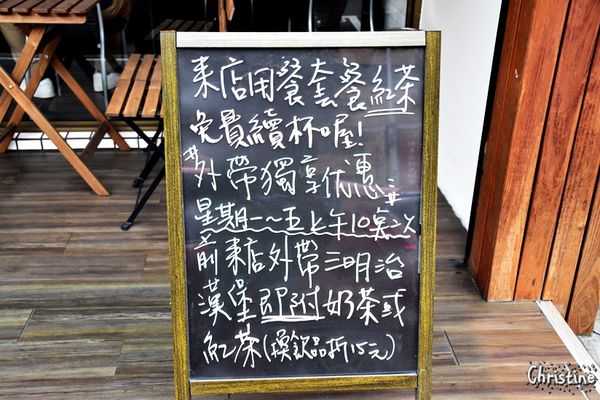 來店用餐套餐紅茶
免費續杯喔!
"外帶獨享优惠"
星期一~五上午10點以
前來店外帶三明治
漢堡即附奶茶或
紅茶(換飲品折15元)
Christine